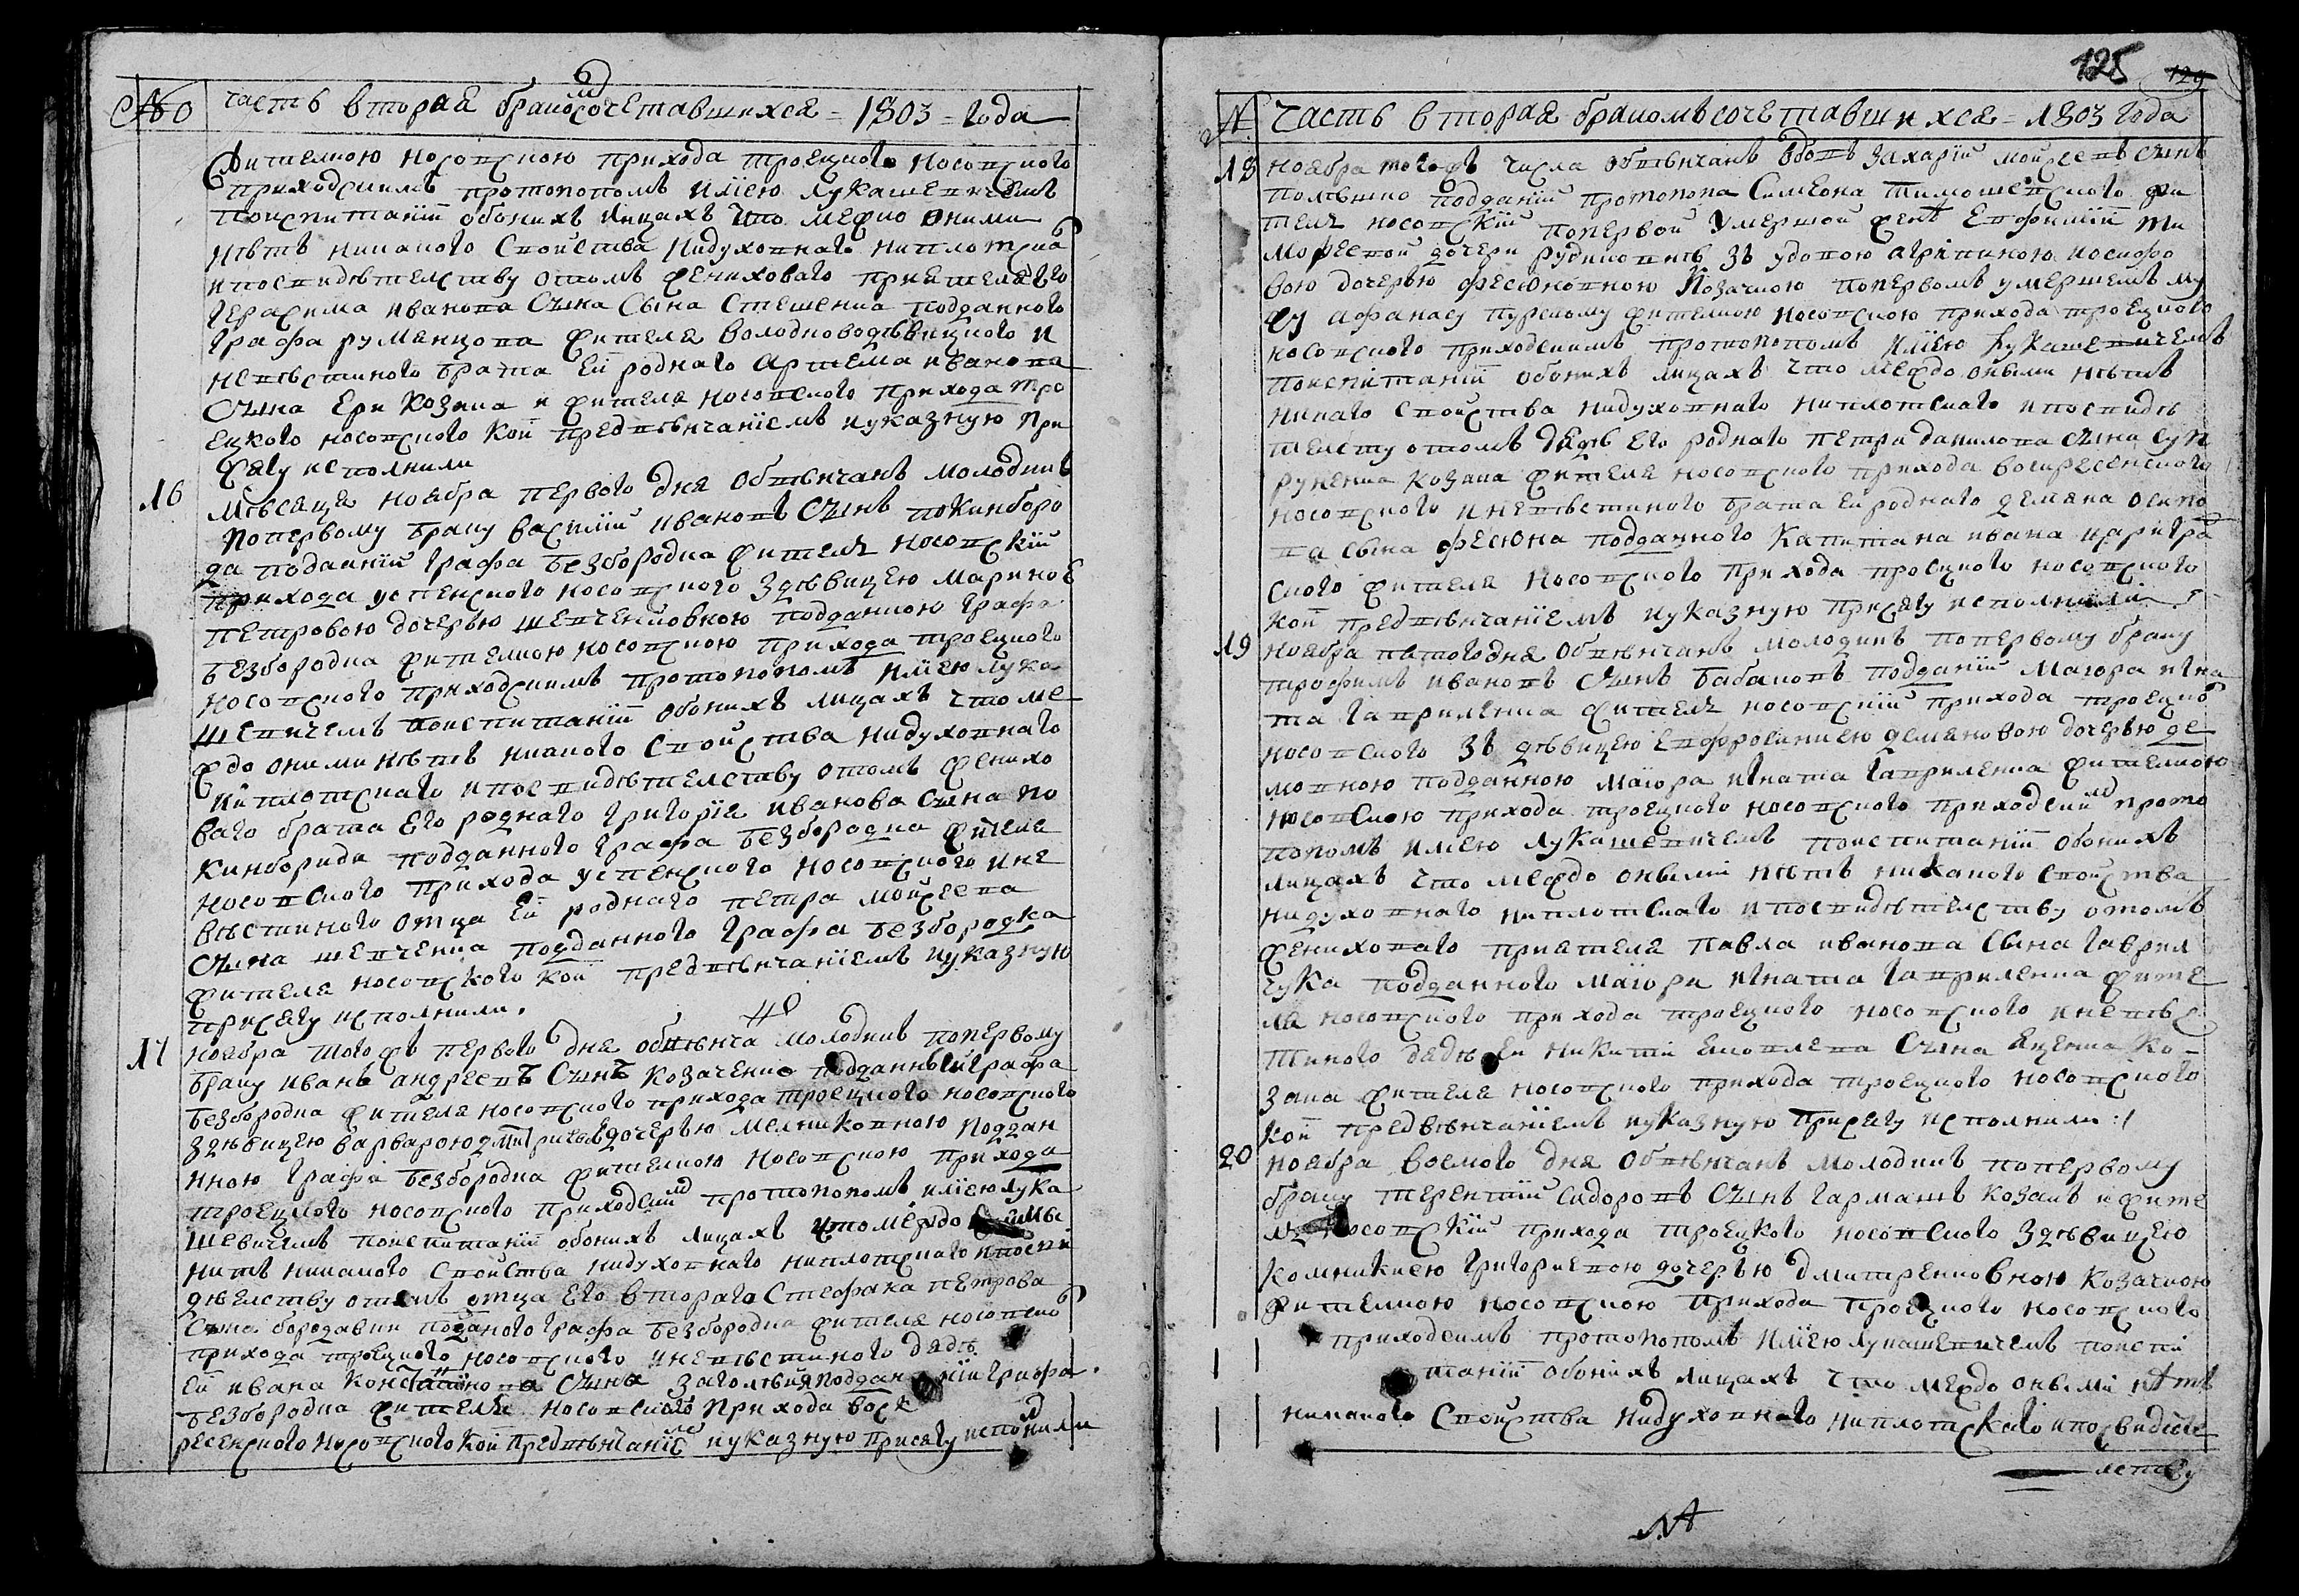 №0 часть вторая бракомъ сочетавшихся = 1803 = года
жителкою носовскою прихода троецкого носовского
приходскимъ протопопомъ илиею лукашевичемъ
повиспитаніи обоихъ лицахъ что между оними
нѣтъ никакого свойства нидуховнаго ниплотскаго
ипосвидѣтелству отомъ жениховаго приятеля его
герасима иванова сына подданного
графа румянцова жителя володководѣвицкого и
невѣстиного брата ей родного артема иванова
сына козака и жителя носовского прихода тро
ецкого носовского кои предвѣнчаніемъ иуказную при
сягу исполнили
16 мѣсяца ноября первого дня обвѣнчанъ молодикъ
поперьвому браку василій ивановъ сынъ покинборо
да поданий графа безбородка жителъ носовскій
прихода успенского носовского здѣвицею мариною
петровою дочерью шевченковною подданною графа
безбородка жителкою носовскою прихода троецкого
носовского приходскимъ протопопомъ илиею лука
шевичемъ повиспитаніи обоихъ лицахъ что ме
ждо оними нѣтъ никакого свойства нидуховнаго
ниплотскаго ипосвидѣтелству отомъ женихо
ваго брата его родного григорія иванова сына по
кинборида подданного графа безбородка жителя
носовского прихода успенского носовского ине
вѣстиного отца ей родного петра мойсеева
сына шевченка подданного графа безбородка
жителя носовского кои предвѣнчаніемъ иуказную
присягу исполнили.
17 ноября тогожъ первого дня обвѣнча молодикъ поперьвому
браку иванъ андреевъ сынъ козаченко подданный графа
безбородка жителя носовского прихода троецкого носовского
здѣвицею варварою дмитриевою дочерью мелниковною поддан
ною графа безбородка жителкою носовскою прихода
троецкого носовского приходским протопопомъ илиею лука
шевичемъ повиспитаніи обоихъ лицахъ что междо
нитъ никакого свойства нидуховнаго ниплотскаго ипосви
дѣтелству отомъ отца его второго стефана петрова
сына бородавки поданого графа безбородка жителя носовско
прихода троецкого носовского иневѣстиного дядѣ
ей ивана константинова сына подданий графа
безбородка жителя носовского прихода воск
ресенского носовского кои предвѣнчаніем иуказную присягу исполнили
125 129
№ часть вторая бракомъ сочетавшихся = 1803 года
18 ноября тогожъ числа обвѣнчанъ вдовъ захарій мойсеевъ сынъ
подданий протопопа симеона тимошевского жи
телъ носовскій поперьвой умершой женѣ евфиміи ти
мофеевой дочери зъ удовою агрипиною иосифо
вою дочерью фесюновною козачкою попервомъ умершемъ му
жу афанасу пурскому жителкою носовскою прихода троецкого
носовского приходскимъ протопопомъ илиею лукашевичемъ
повиспитаніи обоихъ лицахъ что междо оными нѣтъ
никаго свойства нидуховнаго ниплотскаго ипосвидѣ
телсту отомъ дядѣ его родного петра данилова сына суп
руненка козака жителя носовского прихода воскресенского
носовского иневѣстиного брата ей родного демяна осипо
ва сына фесюна подданного капитана ивана цариград
ского жителя носовского прихода троецкого носовского
кои предвѣнчаніемъ иуказную присягу исполнили
19 ноября пятогодня обвѣнчанъ молодикъ поперьвому браку
трофимъ ивановъ сынъ бабаковъ подданий маіора игна
та гавриленка жителъ носовский прихода троецко
носовского зъ дѣвицею евфросиниею демяновою дочерью де
мовною подданною маіора игната гавриленка жителкою
носовскою прихода троецкого носовского приходским прото
попомъ илиею лукашевичемъ повиспитаніи обоихъ
лицахъ что междо оными нѣтъ никакого свойства
нидуховнаго ниплотскаго ипосвидѣтелству отомъ
жениховаго приятеля павла иванова сына гаврил
чука подданного маіора игната гавриленка жите
ля носовского прихода троецкого носовского иневѣс
тиного дядѣ ей никити яковлева сына яценка ко-
зака жителя носовского прихода троецкого носовского
кои предвѣнчаніемъ иуказную присягу исполнили :/
20 ноября восмого дня обвѣнчанъ молодикъ поперьвому
браку терентий сидоровъ сынъ гармашъ козакъ и жите
лъ носовскій прихода троецкого носовского здѣвицею
григориевою дочерью дмитренковною козачкою
жителкою носовскою прихода троецкого носовского
приходскимъ протопопомъ илиею лукашевичемъ повиспи
таніи обоихъ лицахъ что междо оными нѣтъ
никакого свойства нидуховнаго ниплотскаго ипосвидѣте
лству